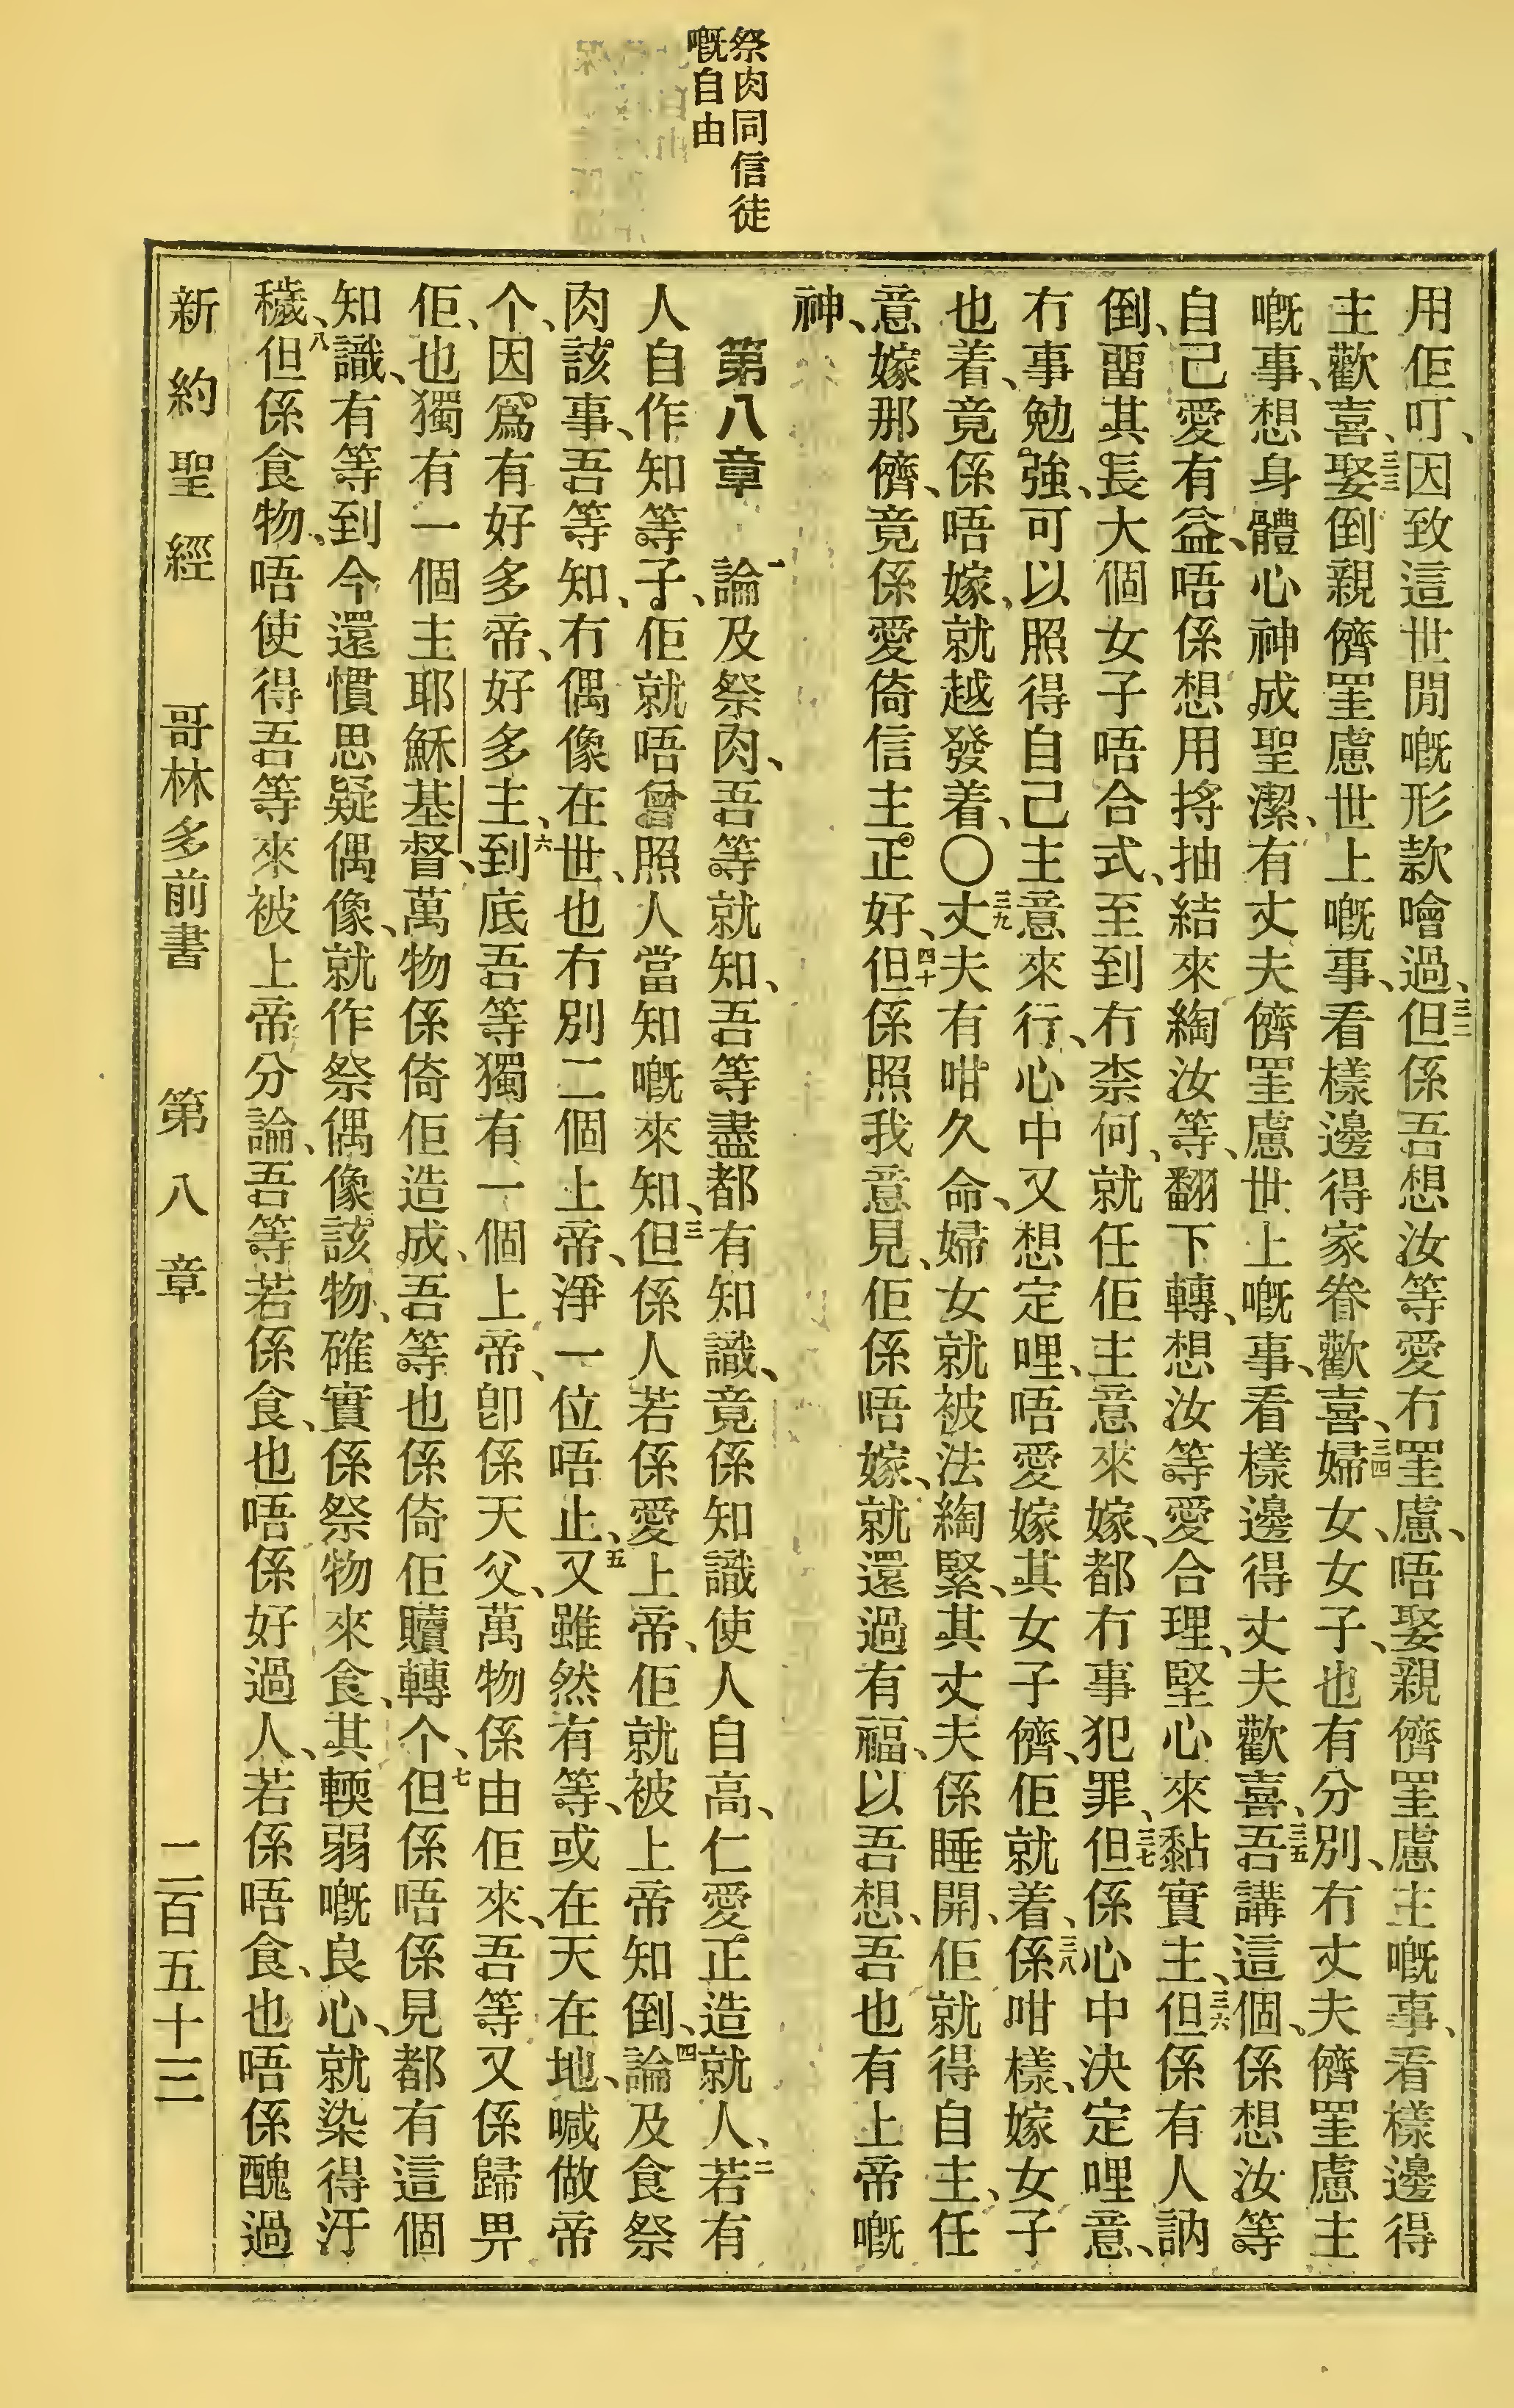 祭肉同信徒
嘅自由
用佢叮、因致這世閒嘅形款噲過、三二但係吾想汝等愛冇罣慮、唔娶親儕罣慮主嘅事、看樣邊得
主歡喜、三三娶倒親儕罣慮世上嘅事、看樣邊得家眷歡喜、三四婦女、女子、也有分別、冇丈夫儕罣慮主
嘅事、想身體心神成聖潔、有丈夫儕罣慮世上嘅事、看樣邊得丈夫歡喜、三五吾講這個、係想汝等
自己愛有益、唔係想用捋抽結來綯汝等、翻下轉、想汝等愛合理、堅心來黏實主、三六但係有人訥
倒、畱其長大個女子唔合式、至到冇柰何、就任佢主意來嫁、都冇事犯罪、三七但係心中決定哩意、
冇事勉強、可以照得自己主意來行、心中又想定哩、唔愛嫁其女子儕、佢就着、三八係咁樣、嫁女子
也着、竟係唔嫁、就越發着、〇三九丈夫有咁久命、婦女就被法綯緊、其丈夫係睡開、佢就得自主、任
意嫁那儕、竟係愛倚信主正好、四十但係照我意見、佢係唔嫁、就還過有福、以吾想、吾也有上帝嘅
神、
第八章 一論及祭肉、吾等就知、吾等盡都有知識、竟係知識使人自高、仁愛正造就人、二若有
人自作知等子、佢就唔曾照人當知嘅來知、三但係人若係愛上帝、佢就被上帝知倒、四論及食祭
肉該事、吾等知、冇偶像在世、也冇別二個上帝、淨一位唔止、五又雖然有等、或在天在地、喊做帝
个、因爲有好多帝、好多主、六到底吾等獨有一個上帝、卽係天父、萬物係由佢來、吾等又係歸畀
佢、也獨有一個主耶穌基督、萬物係倚佢造成、吾等也係倚佢贖轉个、七但係唔係見都有這個
知識、有等到今還慣思疑偶像、就作祭偶像該物、確實係祭物來食、其輭弱嘅良心、就染得汙
穢、八但係食物、唔使得吾等來被上帝分論、吾等若係食、也唔係好過人、若係唔食、也唔係醜過
新約聖經 哥林多前書 第八章 二百五十三